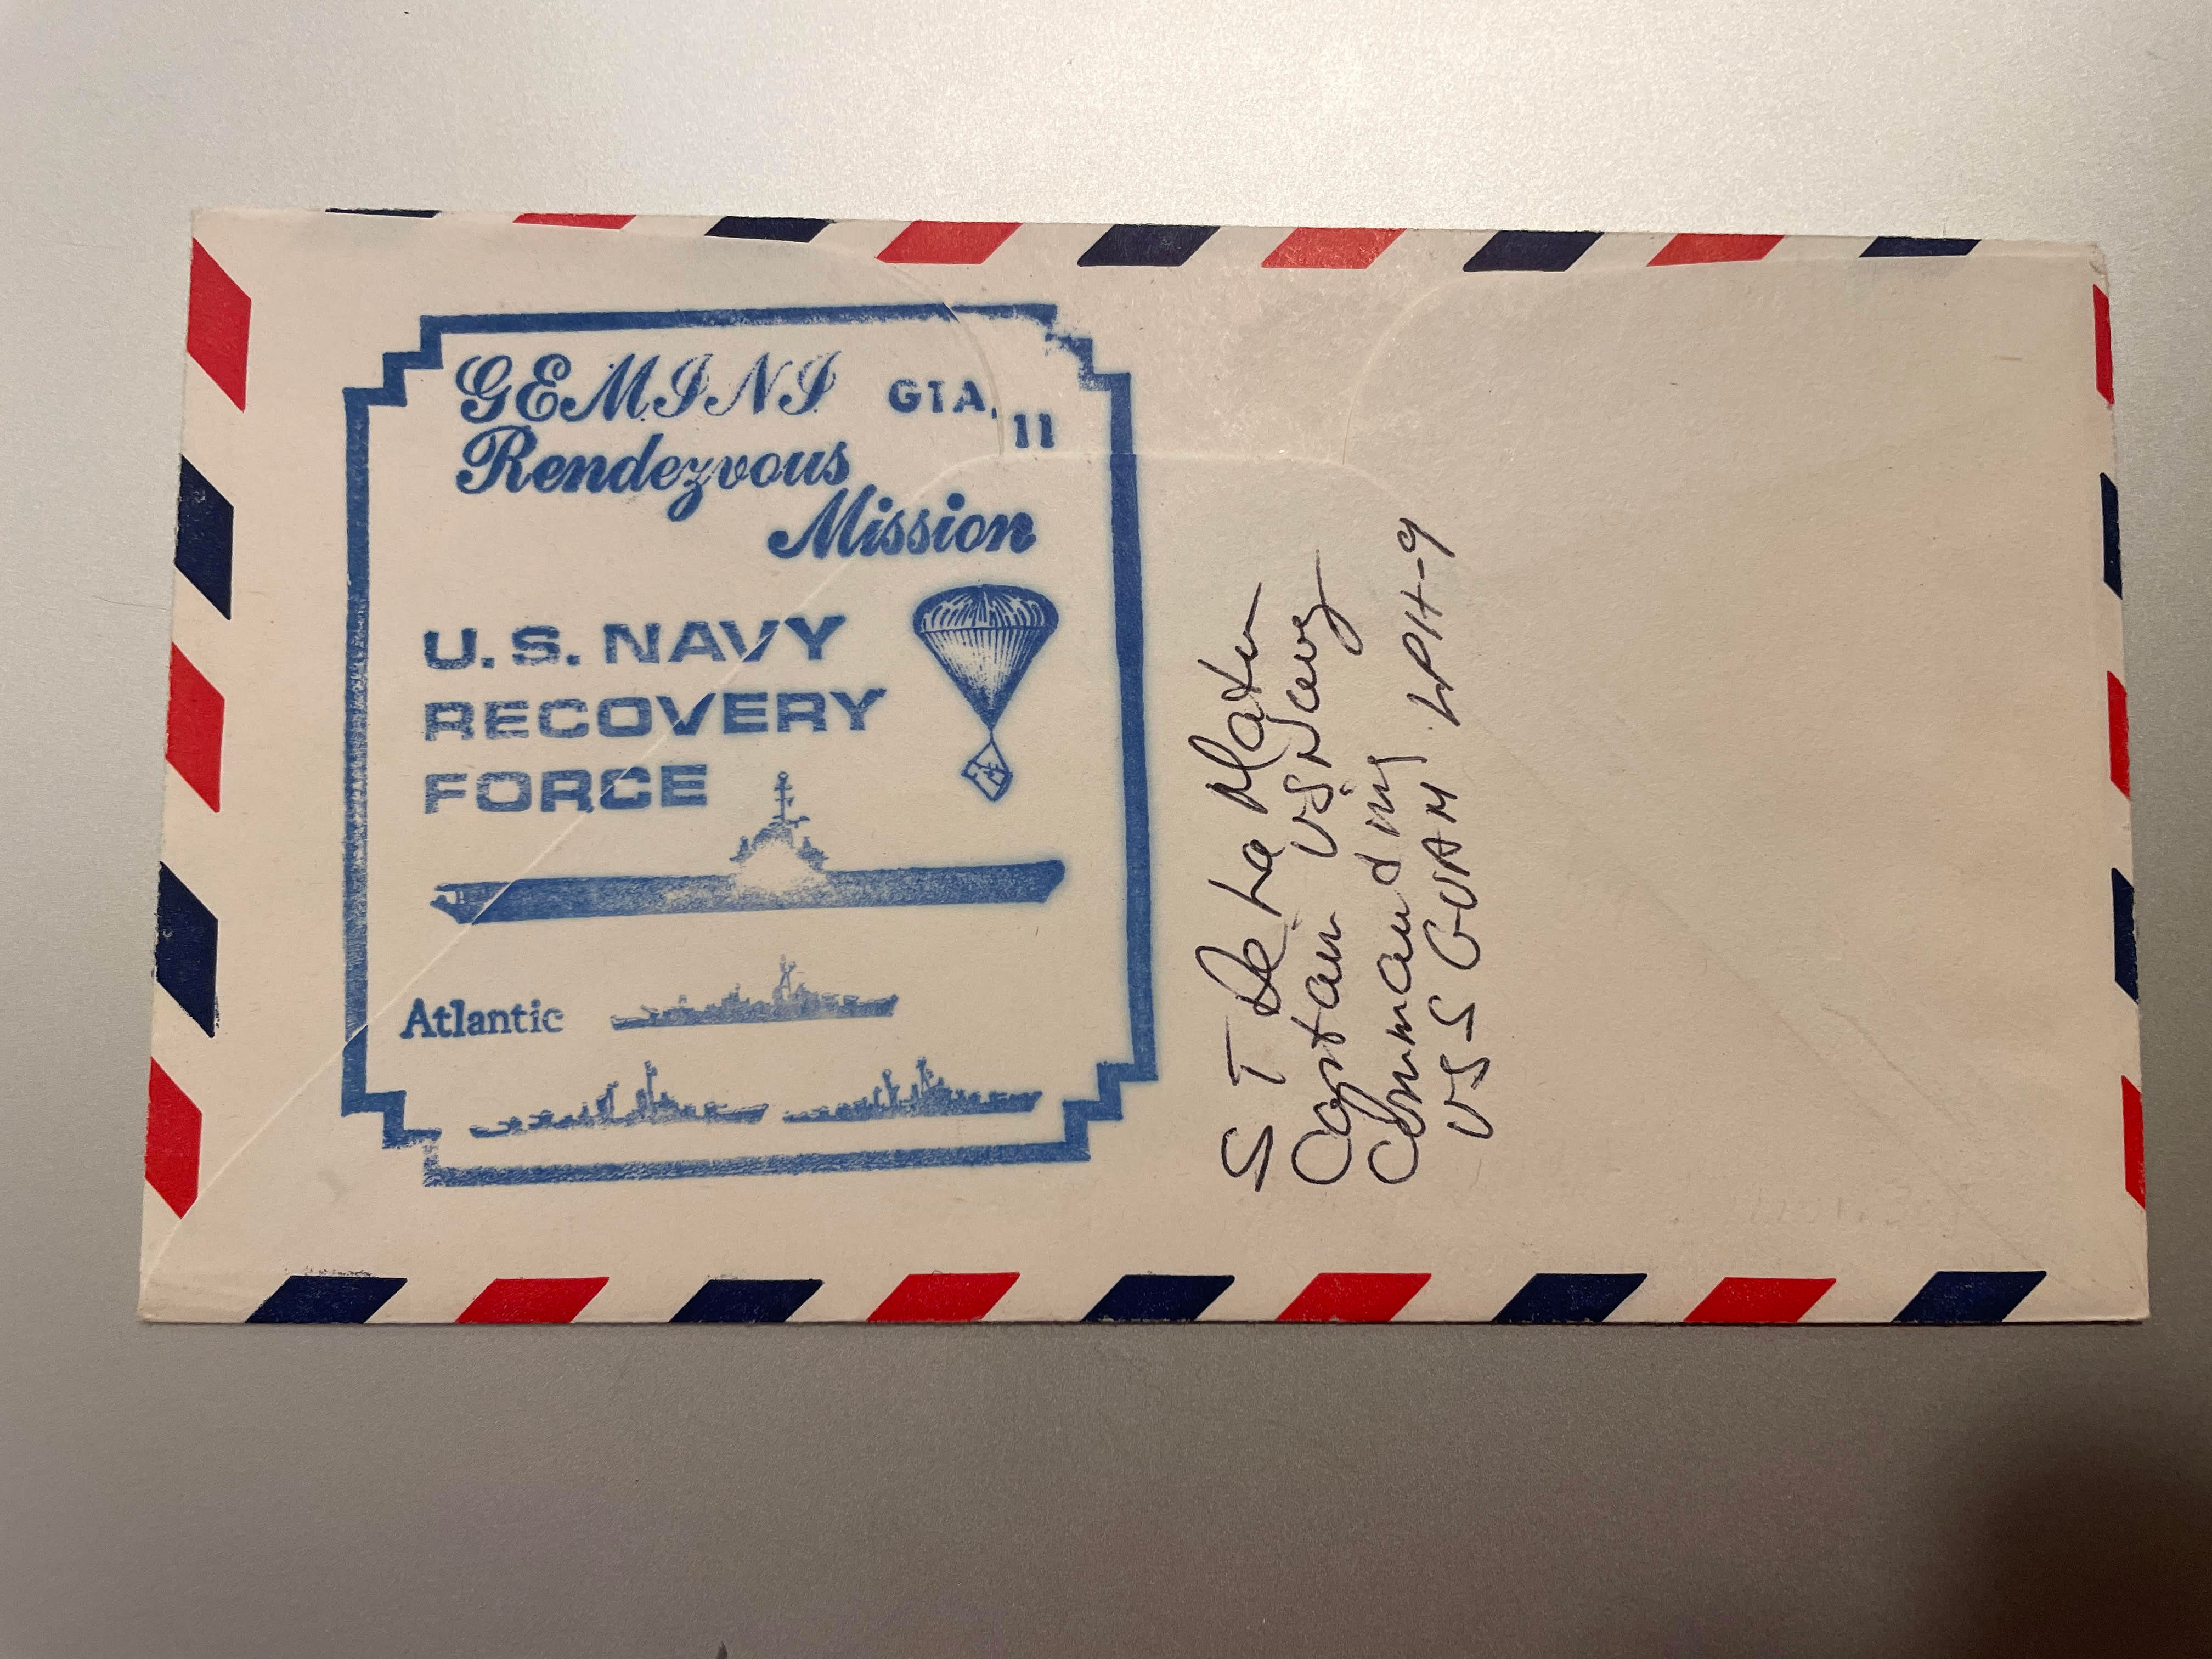 GEMINI GTA.
11
Rendezvous
Mission
U.S. NAVY
RECOVERY
FORCE
Atlantic
S T De La Mater
Captain US Navy
Commanding
USS GUAM LPH-9